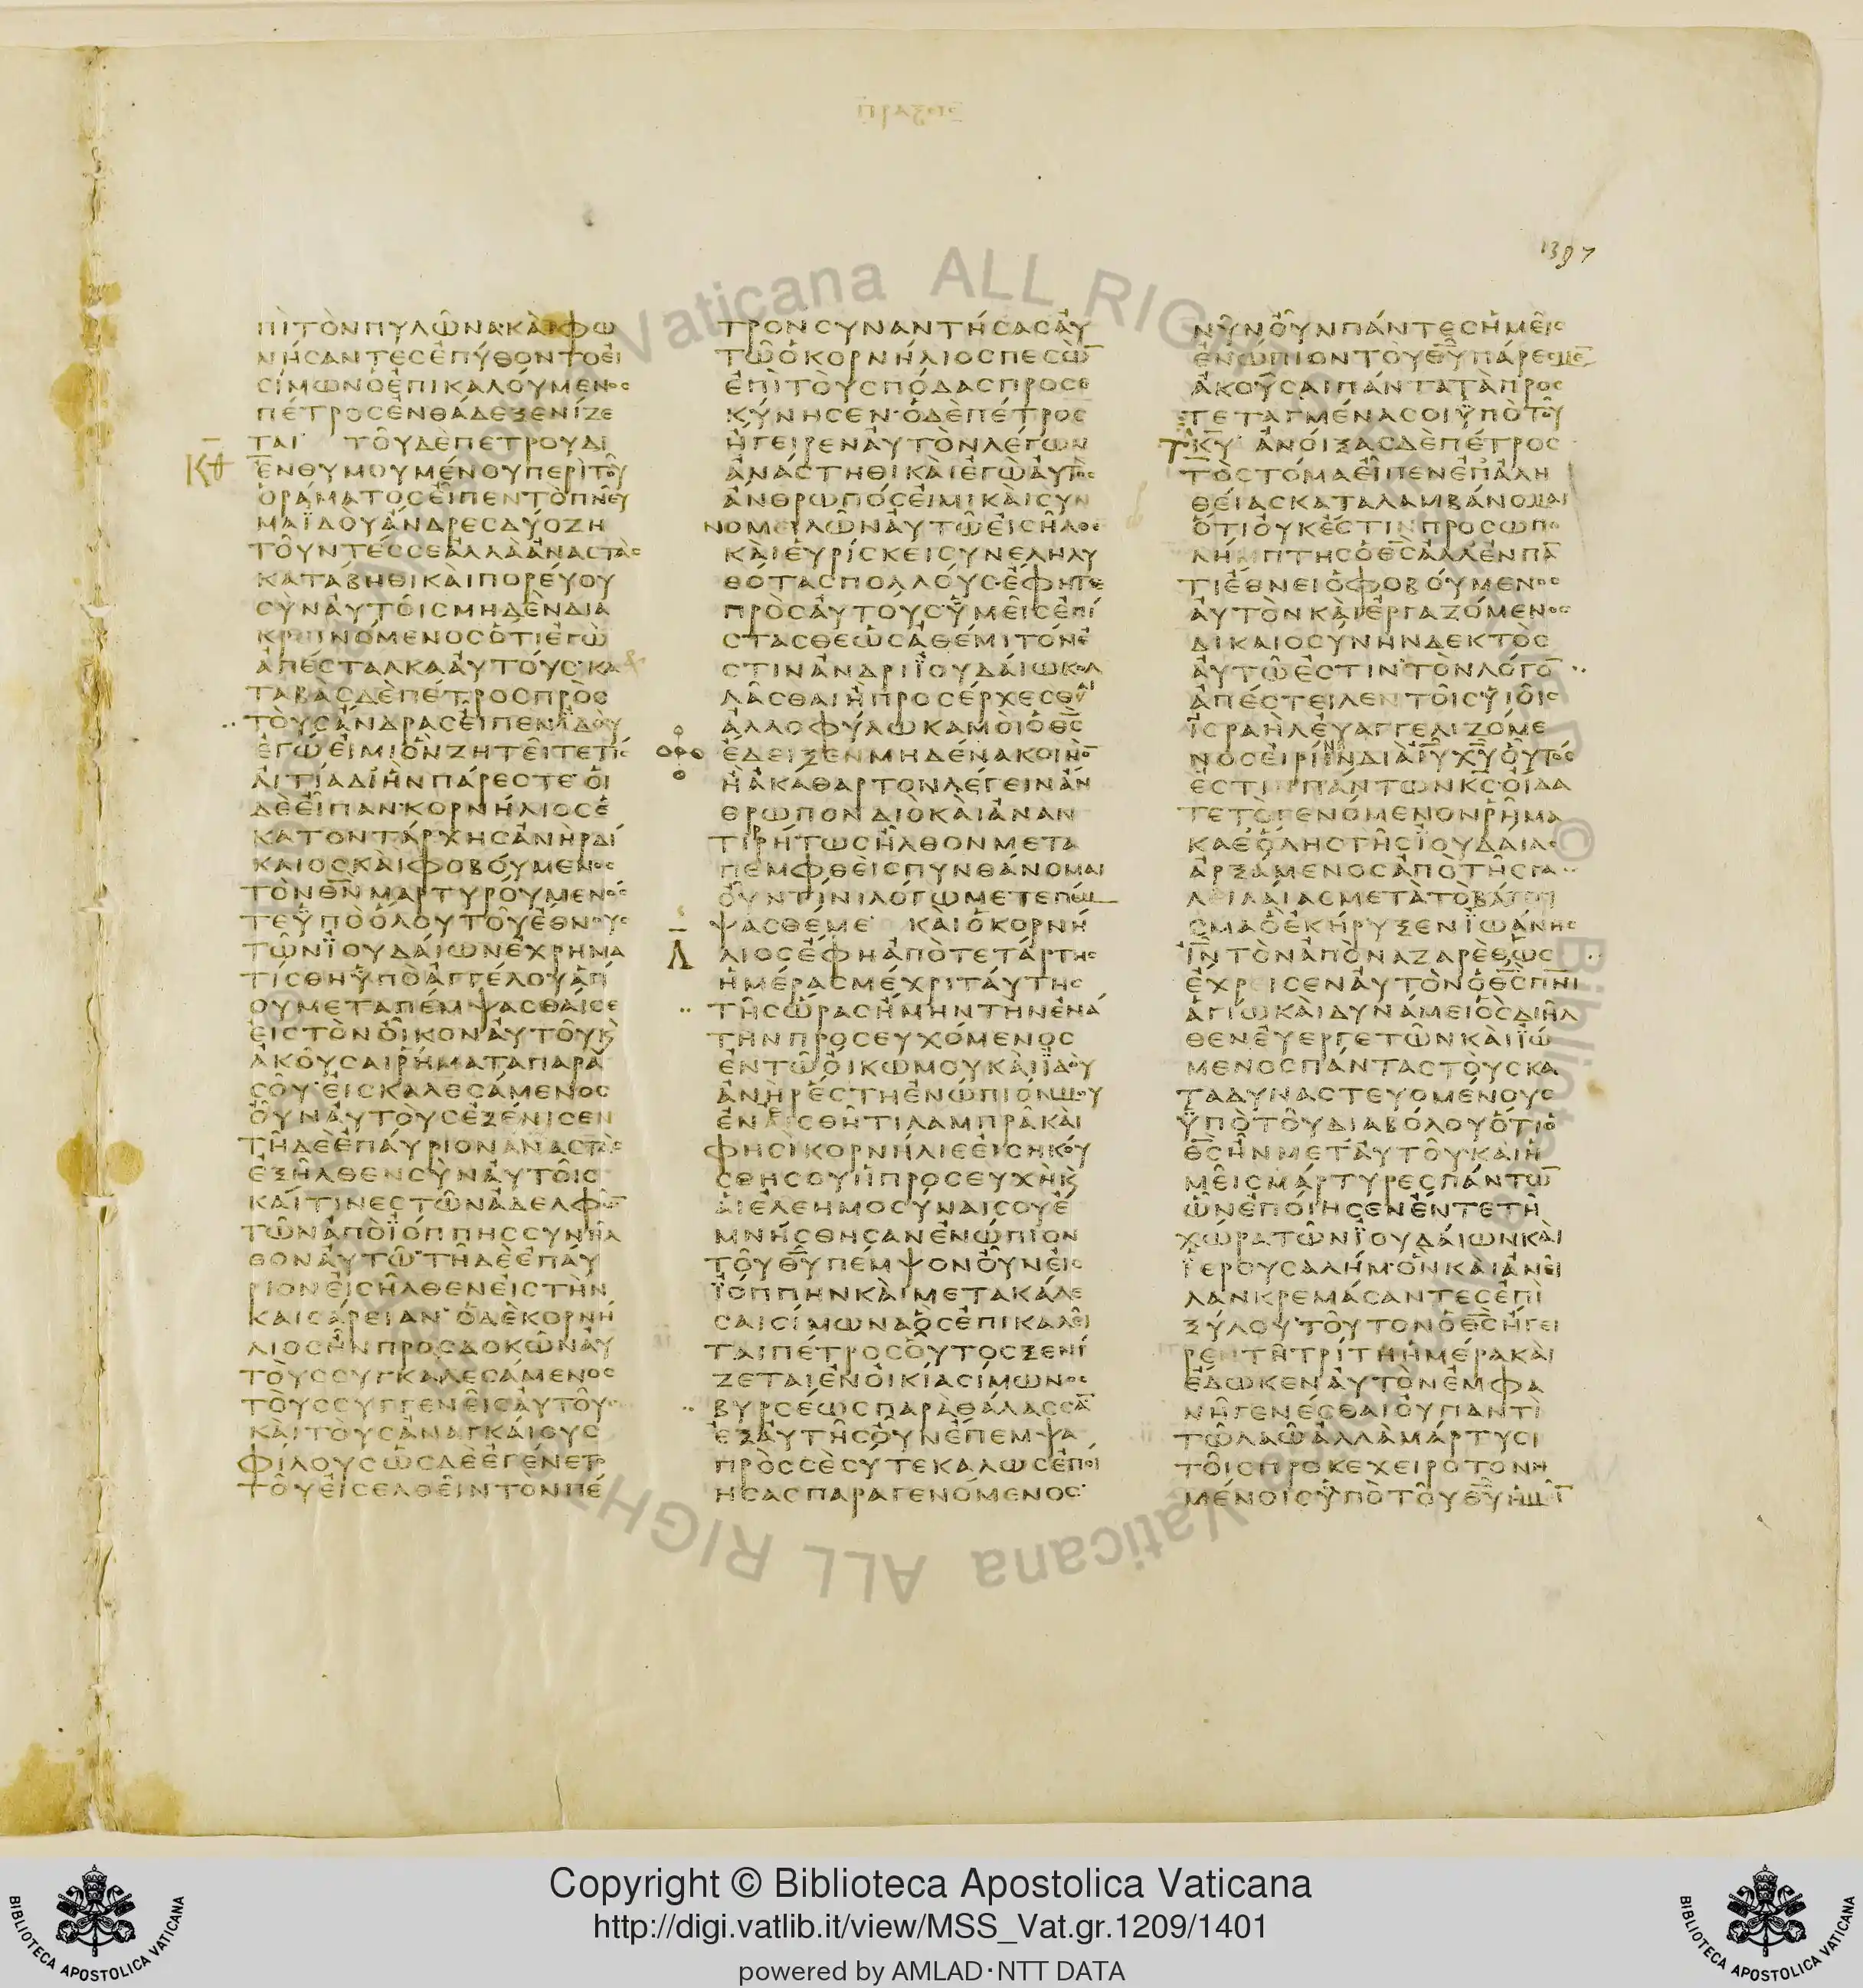 1397
ΠΙΤΟΝΠΥΛΩΝΑΚΑΙΦΩ
ΝΗΣΑΝΤΕΣΕΠΥΘΟΝΤΟΕΙ
ΣΙΜΩΝΟΕΠΙΚΑΛΟΥΜΕΝΟΣ
ΠΕΤΡΟΣΕΝΘΑΔΕΞΕΝΙΖΕ
ΤΑΙ ΤΟΥΔΕΠΕΤΡΟΥΔΙ
ΚΘ
ΕΝΘΥΜΟΥΜΕΝΟΥΠΕΡΙΤΟΥ
ΟΡΑΜΑΤΟΣΕΙΠΕΝΤΟΠΝΕΥ
ΜΑΪΔΟΥΑΝΔΡΕΣΔΥΟΖΗ
ΤΟΥΝΤΕΣΣΕΑΛΛΑΑΝΑΣΤΑΣ
ΚΑΤΑΒΗΘΙΚΑΙΠΟΡΕΥΟΥ
ΣΥΝΑΥΤΟΙΣΜΗΔΕΝΔΙΑ
ΚΡΕΙΝΟΜΕΝΟΣΟΤΙΕΓΩ
ΑΠΕΣΤΑΛΚΑΑΥΤΟΥΣ·ΚΑ
ΤΑΒΑΣΔΕΠΕΤΡΟΣΠΡΟΣ
ΤΟΥΣΑΝΔΡΑΣΕΙΠΕΝΪΔΟΥ
ΕΓΩΕΙΜΙΟΝΖΗΤΕΙΤΕΤΙΣ
ΑΙΤΙΑΔΙΗΝΠΑΡΕΣΤΕ·ΟΙ
ΔΕΕΙΠΑΝ·ΚΟΡΝΗΛΙΟΣΕ
ΚΑΤΟΝΤΑΡΧΗΣΑΝΗΡΔΙ
ΚΑΙΟΣΚΑΙΦΟΒΟΥΜΕΝΟΣ
ΤΟΝΘΝ̅ΜΑΡΤΥΡΟΥΜΕΝΟΣ
ΤΕΫΠΟΟΛΟΥΤΟΥΕΘΝΟΥΣ
ΤΩΝΪΟΥΔΑΙΩΝΕΧΡΗΜΑ
ΤΙΣΘΗΫΠΟΑΓΓΕΛΟΥΑΓΙ
ΟΥΜΕΤΑΠΕΜΨΑΣΘΑΙΣΕ
ΕΙΣΤΟΝΟΙΚΟΝΑΥΤΟΥΚ
ΑΚΟΥΣΑΙΡΗΜΑΤΑΠΑΡΑ
ΣΟΥ·ΕΙΣΚΑΛΕΣΑΜΕΝΟΣ
ΟΥΝΑΥΤΟΥΣΕΞΕΝΙΣΕΝ
ΤΗΔΕΕΠΑΥΡΙΟΝΑΝΑΣΤΑΣ
ΕΞΗΛΘΕΝΣΥΝΑΥΤΟΙΣ
ΚΑΙΤΙΝΕΣΤΩΝΑΔΕΛΦΩ̅
ΤΩΝΑΠΟΪΟΠΠΗΣΣΥΝΗΛ
ΘΟΝΑΥΤΩ·ΤΗΔΕΕΠΑΥ
ΡΙΟΝΕΙΣΗΛΘΕΝΕΙΣΤΗΝ
ΚΑΙΣΑΡΕΙΑΝ·ΟΔΕΚΟΡΝΗ
ΛΙΟΣΗΝΠΡΟΣΔΟΚΩΝΑΥ
ΤΟΥΣΣΥΓΚΑΛΕΣΑΜΕΝΟΣ
ΤΟΥΣΣΥΓΓΕΝΕΙΣΑΥΤΟΥ
ΚΑΙΤΟΥΣΑΝΑΓΚΑΙΟΥΣ
ΦΙΛΟΥΣΩΣΔΕΕΓΕΝΕΤΟ
ΤΟΥΕΙΣΕΛΘΕΙΝΤΟΝΠΕ
ΤΡΟΝΣΥΝΑΝΤΗΣΑΣΑΥ
ΤΩΟΚΟΡΝΗΛΙΟΣΠΕΣΩ̅
ΕΠΙΤΟΥΣΠΟΔΑΣΠΡΟΣΕ
ΚΥΝΗΣΕΝ·ΟΔΕΠΕΤΡΟΣ
ΗΓΕΙΡΕΝΑΥΤΟΝΛΕΓΩΝ
ΑΝΑΣΤΗΘΙΚΑΙΕΓΩΑΥΤΟΣ
ΑΝΘΡΩΠΟΣΕΙΜΙΚΑΙΣΥΝ
ΝΟΜΕΙΛΩΝΑΥΤΩΕΙΣΗΛΘΕ
ΚΑΙΕΥΡΙΣΚΕΙΣΥΝΕΛΗΛΥ
ΘΟΤΑΣΠΟΛΛΟΥΣ·ΕΦΗΤΕ
ΠΡΟΣΑΥΤΟΥΣΫΜΕΙΣΕΠΙ
ΣΤΑΣΘΕΩΣΑΘΕΜΙΤΟΝΕ
ΣΤΙΝΑΝΔΡΙΪΟΥΔΑΙΩΚΟΛ
ΛΑΣΘΑΙΗΠΡΟΣΕΡΧΕΣΘΑΙ
ΑΛΛΟΦΥΛΩΚΑΜΟΙΟΘΣ̅
ΕΔΕΙΞΕΝΜΗΔΕΝΑΚΟΙΝΟ̅
ΗΑΚΑΘΑΡΤΟΝΛΕΓΕΙΝΑΝ
ΘΡΩΠΟΝΔΙΟΚΑΙΑΝΑΝ
ΤΙΡΗΤΩΣΗΛΘΟΝΜΕΤΑ
ΠΕΜΦΘΕΙΣΠΥΝΘΑΝΟΜΑΙ
ΟΥΝΤΙΝΙΛΟΓΩΜΕΤΕΠΕΜ
ΨΑΣΘΕΜΕ· ΚΑΙΟΚΟΡΝΗ
Λ
ΛΙΟΣΕΦΗΑΠΟΤΕΤΑΡΤΗΣ
ΗΜΕΡΑΣΜΕΧΡΙΤΑΥΤΗΣ
ΤΗΣΩΡΑΣΗΜΗΝΤΗΝΕΝΑ
ΤΗΝΠΡΟΣΕΥΧΟΜΕΝΟΣ
ΕΝΤΩΟΙΚΩΜΟΥΚΑΙΪΔΟΥ
ΑΝΗΡΕΣΤΗΕΝΩΠΙΟΝΜΟΥ
ΕΝΕΣΘΗΤΙΛΑΜΠΡΑΚΑΙ
ΦΗΣΙΚΟΡΝΗΛΙΕΕΙΣΗΚΟΥ
ΣΘΗΣΟΥΗΠΡΟΣΕΥΧΗΚ
ΑΙΕΛΕΗΜΟΣΥΝΑΙΣΟΥΕ
ΜΝΗΣΘΗΣΑΝΕΝΩΠΙΟΝ
ΤΟΥΘΥ̅ΠΕΜΨΟΝΟΥΝΕΙΣ
ΪΟΠΠΗΝΚΑΙΜΕΤΑΚΑΛΕ
ΣΑΙΣΙΜΩΝΑΟΣΕΠΙΚΑΛΕΙ
ΤΑΙΠΕΤΡΟΣΟΥΤΟΣΞΕΝΙ
ΖΕΤΑΙΕΝΟΙΚΙΑΣΙΜΩΝΟΣ
ΒΥΡΣΕΩΣΠΑΡΑΘΑΛΑΣΣΑ̅
ΕΞΑΥΤΗΣΟΥΝΕΠΕΜΨΑ
ΠΡΟΣΣΕΣΥΤΕΚΑΛΩΣΕΠΟΙ
ΗΣΑΣΠΑΡΑΓΕΝΟΜΕΝΟΣ·
ΝΥΝΟΥΝΠΑΝΤΕΣΗΜΕΙΣ
ΕΝΩΠΙΟΝΤΟΥΘΥ̅ΠΑΡΕΣΜΕ̅
ΑΚΟΥΣΑΙΠΑΝΤΑΤΑΠΡΟΣ
ΤΕΤΑΓΜΕΝΑΣΟΙΫΠΟΤΟΥ
ΚΥ̅· ΑΝΟΙΞΑΣΔΕΠΕΤΡΟΣ
ΤΟΣΤΟΜΑΕΙΠΕΝΕΠΑΛΗ
ΘΕΙΑΣΚΑΤΑΛΑΜΒΑΝΟΜΑΙ
ΟΤΙΟΥΚΕΣΤΙΝΠΡΟΣΩΠΟ
ΛΗΜΠΤΗΣΟΘΣ̅ΑΛΛΕΝΠΑ̅
ΤΙΕΘΝΕΙΟΦΟΒΟΥΜΕΝΟΣ
ΑΥΤΟΝΚΑΙΕΡΓΑΖΟΜΕΝΟΣ
ΔΙΚΑΙΟΣΥΝΗΝΔΕΚΤΟΣ
ΑΥΤΩΕΣΤΙΝ·ΤΟΝΛΟΓΟ̅
ΑΠΕΣΤΕΙΛΕΝΤΟΙΣΥΙΟΙΣ
ΪΣΡΑΗΛΕΥΑΓΓΕΛΙΖΟΜΕ
ΝΟΣΕΙΡΗΝΗΝΔΙΑΙΥ̅ΧΥ̅ΟΥΤΟΣ
ΕΣΤΙΝΠΑΝΤΩΝΚΣ̅·ΟΙΔΑ
ΤΕΤΟΓΕΝΟΜΕΝΟΝΡΗΜΑ
ΚΑΘΟΛΗΣΤΗΣΪΟΥΔΑΙΑΣ
ΑΡΞΑΜΕΝΟΣΑΠΟΤΗΣΓΑ
ΛΕΙΛΑΙΑΣΜΕΤΑΤΟΒΑΠΤΙ
ΣΜΑΟΕΚΗΡΥΞΕΝΪΩΑΝΗΣ
ΙΝ̅ΤΟΝΑΠΟΝΑΖΑΡΕΘΩΣ
ΕΧΡΕΙΣΕΝΑΥΤΟΝΟΘΣ̅ΠΝΙ̅
ΑΓΙΩΚΑΙΔΥΝΑΜΕΙΟΣΔΙΗΛ
ΘΕΝΕΥΕΡΓΕΤΩΝΚΑΙΪΩ
ΜΕΝΟΣΠΑΝΤΑΣΤΟΥΣΚΑ
ΤΑΔΥΝΑΣΤΕΥΟΜΕΝΟΥΣ
ΫΠΟΤΟΥΔΙΑΒΟΛΟΥΟΤΙΟ
ΘΣ̅ΗΝΜΕΤΑΥΤΟΥ·ΚΑΙΗ
ΜΕΙΣΜΑΡΤΥΡΕΣΠΑΝΤΩ̅
ΩΝΕΠΟΙΗΣΕΝΕΝΤΕΤΗ
ΧΩΡΑΤΩΝΪΟΥΔΑΙΩΝΚΑΙ
ΪΕΡΟΥΣΑΛΗΜ·ΟΝΚΑΙΑΝΕΙ
ΛΑΝΚΡΕΜΑΣΑΝΤΕΣΕΠΙ
ΞΥΛΟΥ·ΤΟΥΤΟΝΟΘΣ̅ΗΓΕΙ
ΡΕΝΤΗΤΡΙΤΗΗΜΕΡΑΚΑΙ
ΕΔΩΚΕΝΑΥΤΟΝΕΜΦΑ
ΝΗΓΕΝΕΣΘΑΙΟΥΠΑΝΤΙ
ΤΩΛΑΩΑΛΛΑΜΑΡΤΥΣΙ
ΤΟΙΣΠΡΟΚΕΧΕΙΡΟΤΟΝΗ
ΜΕΝΟΙΣΫΠΟΤΟΥΘΥ̅ΗΜΙ̅
Copyright © Biblioteca Apostolica Vaticana
http://digi.vatlib.it/view/MSS_Vat.gr.1209/1401
powered by AMLAD·NTT DATA
BIBLIOTECA APOSTOLICA VATICANA
BIBLIOTECA APOSTOLICA VATICANA